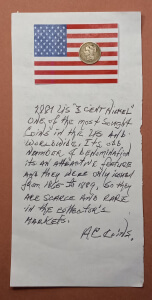 1881 US "3 CENT NICKEL"
ONE OF THE MOST SOUGHT
COINS IN THE US AND
WORLDWIDE, ITS ODD
NUMBER OF DENOMINATION
ITS AN ATTRACTIVE FEATURE
AND THEY WERE ONLY ISSUED
FROM 1865 TO 1889, SO THEY
ARE SCARCE AND RARE
IN THE COLLECTOR'S
MARKETS.
A.C. COINS.